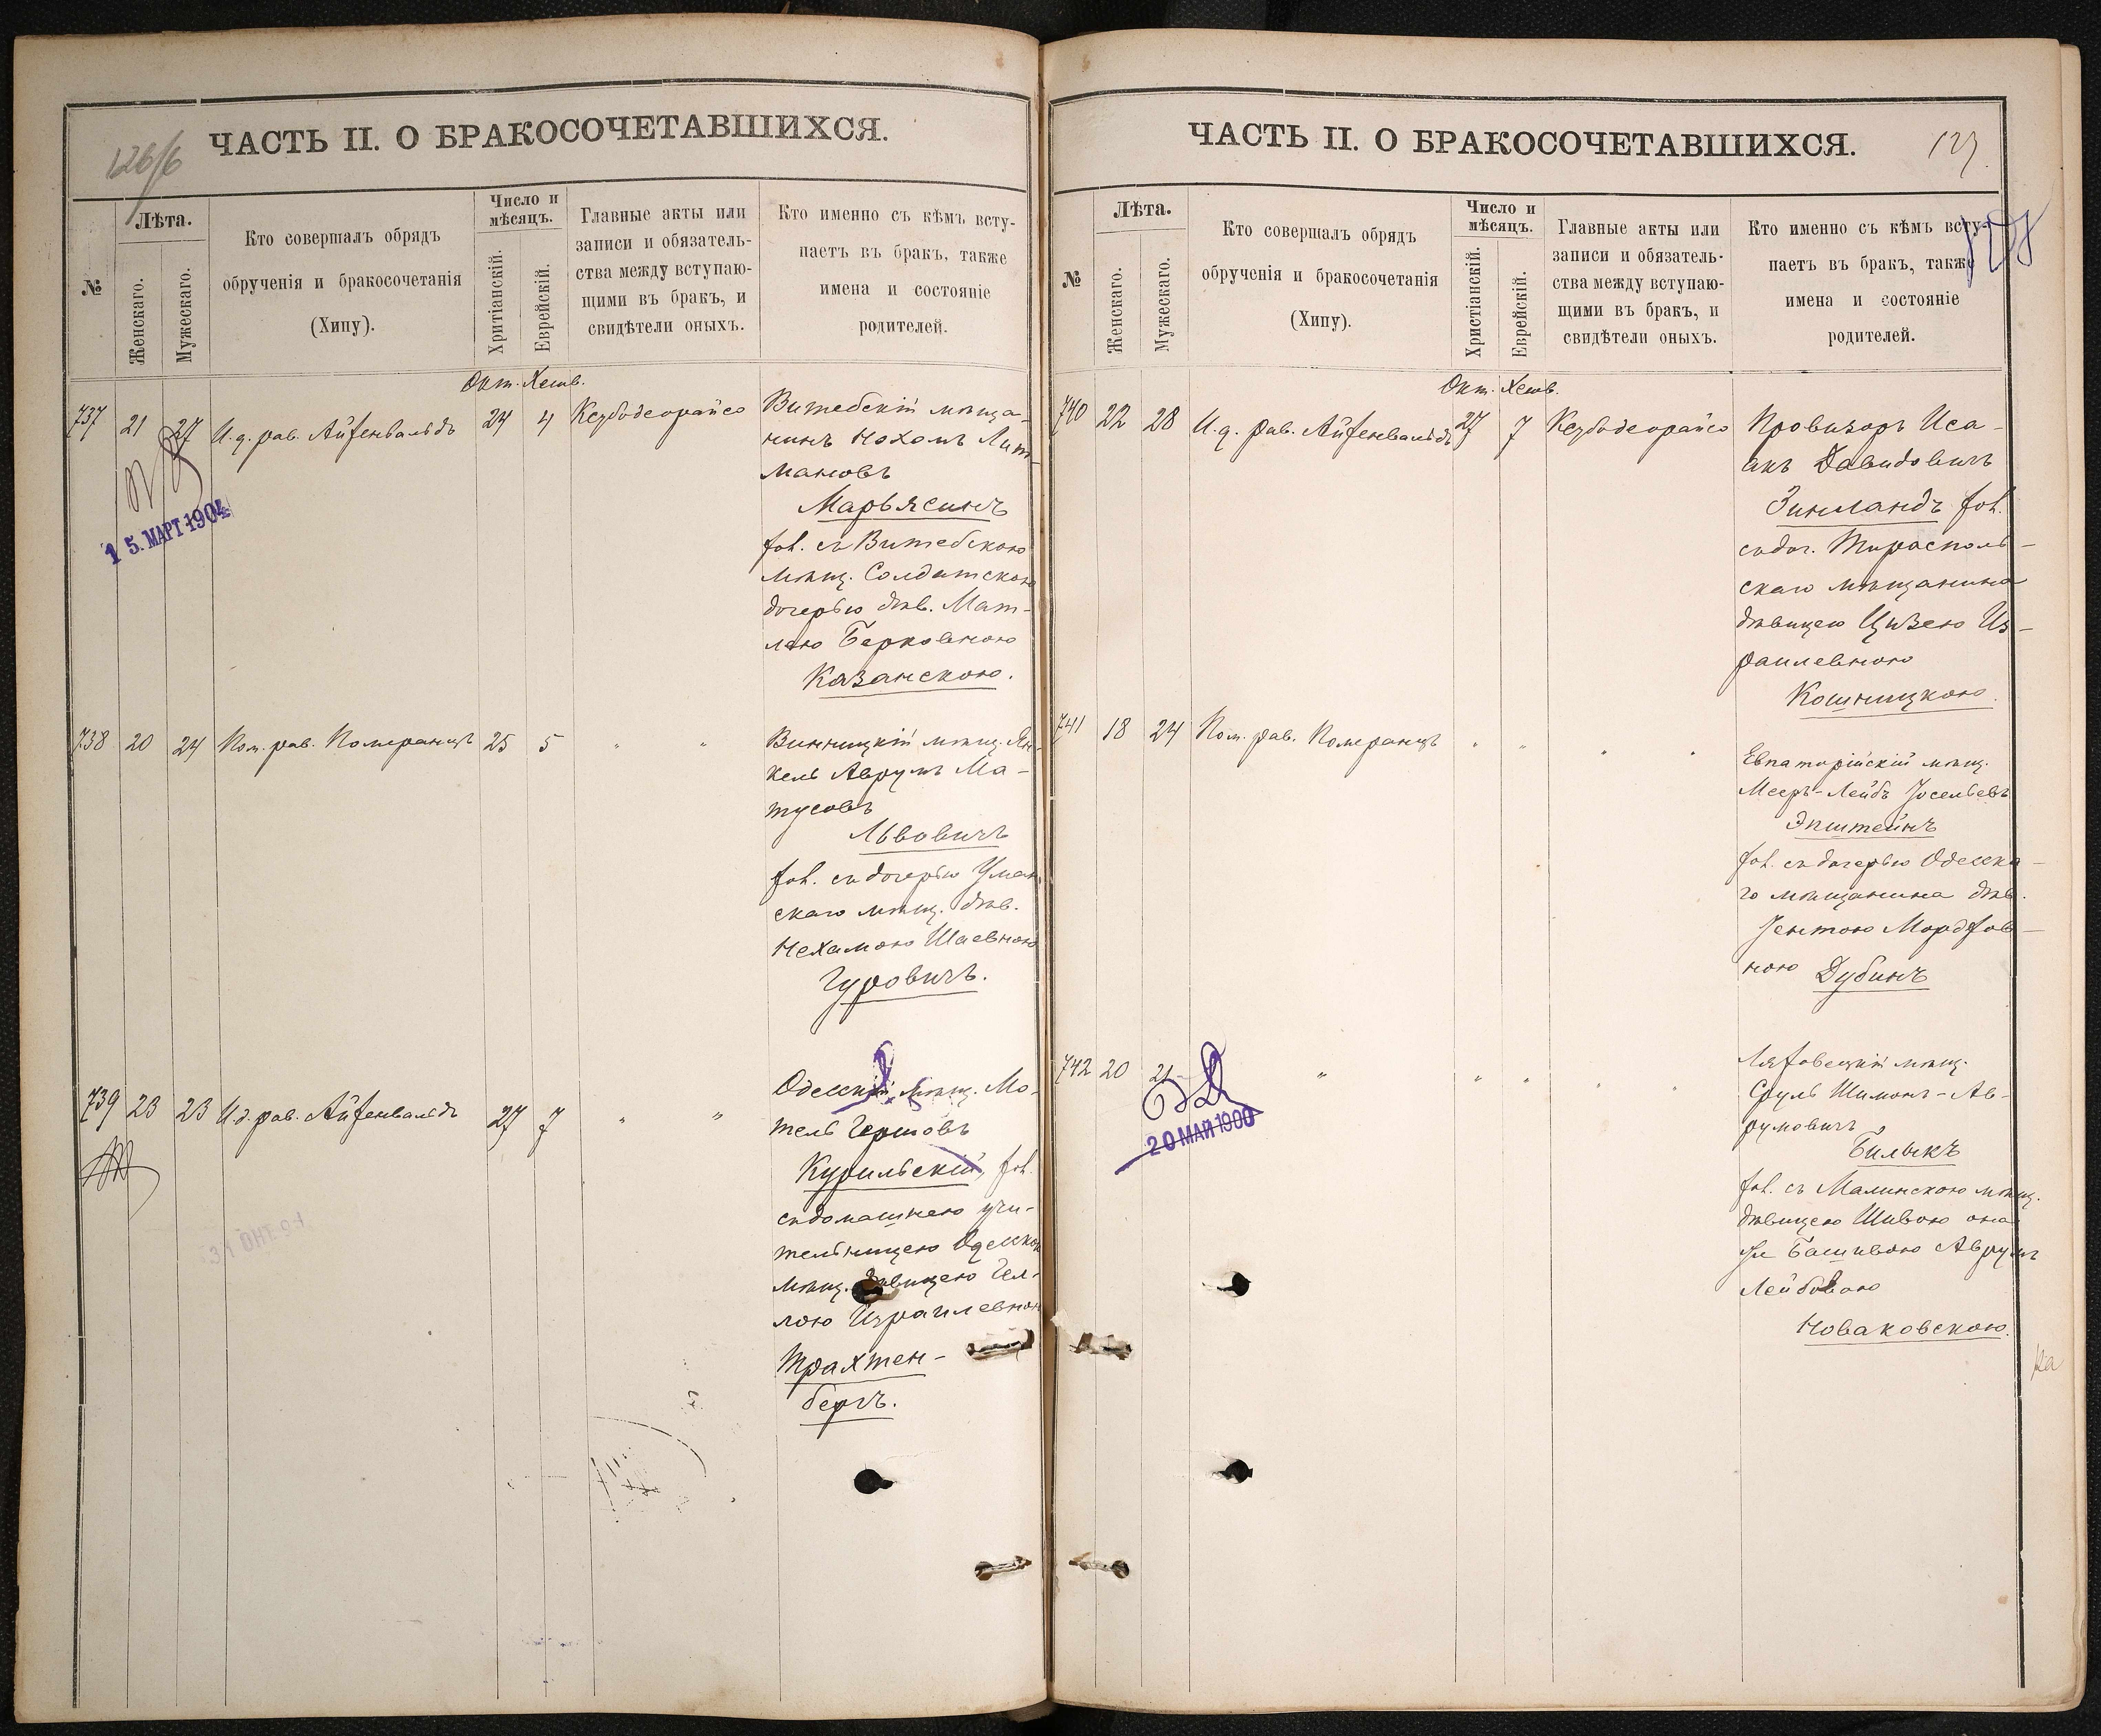 126/6
ЧАСТЬ II. О БРАКОСОЧЕТАВШИХСЯ.
№
Лѣта.
Женскаго.
Мужескаго.
Кто совершалъ обрядъ
обрученія и бракосочетанія
(Хипу).
Число и
мѣсяцъ.
Хритіанскій.
Еврейскій.
Главные акты или
записи и обязатель-
ства между вступаю-
щими въ бракъ, и
свидѣтели оныхъ.
Кто именно съ кѣмъ всту-
паетъ въ бракъ, также
имена и состояніе
родителей.
Окт. Хешв.
737 21 27 И. д. рав. Айзенвальдъ 24 4 Кезбодеорайсо
Витебскій мѣща-
нинъ Нохомъ Лит-
мановъ
Марьясинъ
хол. съ Витебскою
мѣщ. Солдатскою
дочерью дѣв. Мат-
лею Берковною
Казанскою.
15. МАРТ 1904
738 20 24 Пом. рав. Померанцъ 25 5 " "
Винницкій мѣщ. Ян-
кель Аврумъ Ма-
тусовъ
Львовичъ
хол. съ дочерью Уман
скаго мѣщ. дѣв.
Нехамою Шаевною
Гуровичъ.
739 23 23 И. д. рав. Айзенвальдъ 27 7 " "
Одесскій мѣщ. Мо-
тель Гершовъ
Курильскій, хол.
съ домашнею учи-
тельницею Одесскою
мѣщ. дѣвицею Гел-
лою Израилевною
Трахтен-
бергъ.
31 ОКТ. 94
ЧАСТЬ II. О БРАКОСОЧЕТАВШИХСЯ.
127.
№
Лѣта.
Женскаго.
Мужескаго.
Кто совершалъ обрядъ
обрученія и бракосочетанія
(Хипу).
Число и
мѣсяцъ.
Христіанскій.
Еврейскій.
Главные акты или
записи и обязатель-
ства между вступаю-
щими въ бракъ, и
свидѣтели оныхъ.
Кто именно съ кѣмъ всту-
паетъ въ бракъ, также
имена и состояніе
родителей.
Окт. Хешв.
740 22 28 И. д. рав. Айзенвальдъ 27 7 Кезбодеорайсо
Провизоръ Иса-
акъ Давидовичъ
Зинландъ хол.
съ доч. Тирасполь-
скаго мѣщанина
дѣвицею Цизею Из-
раилевною
Кошницкою.
741 18 24 Пом. рав. Померанцъ " " " "
Евпаторійскій мѣщ.
Мееръ-Лейбъ Іосельевъ
Эпштейнъ
хол. съ дочерью Одесска-
го мѣщанина дѣв.
Іентою Мордхов-
ною Дубинъ
742 20 21 " " " " "
Ляховецкій мѣщ.
Сруль Шимонъ-Ав-
румовичъ
Билыкъ
хол. съ Малинскою мѣщ.
дѣвицею Шивою она
же Башивою Аврумъ
Лейбовою
Новаковскою.
20 МАЙ 1900